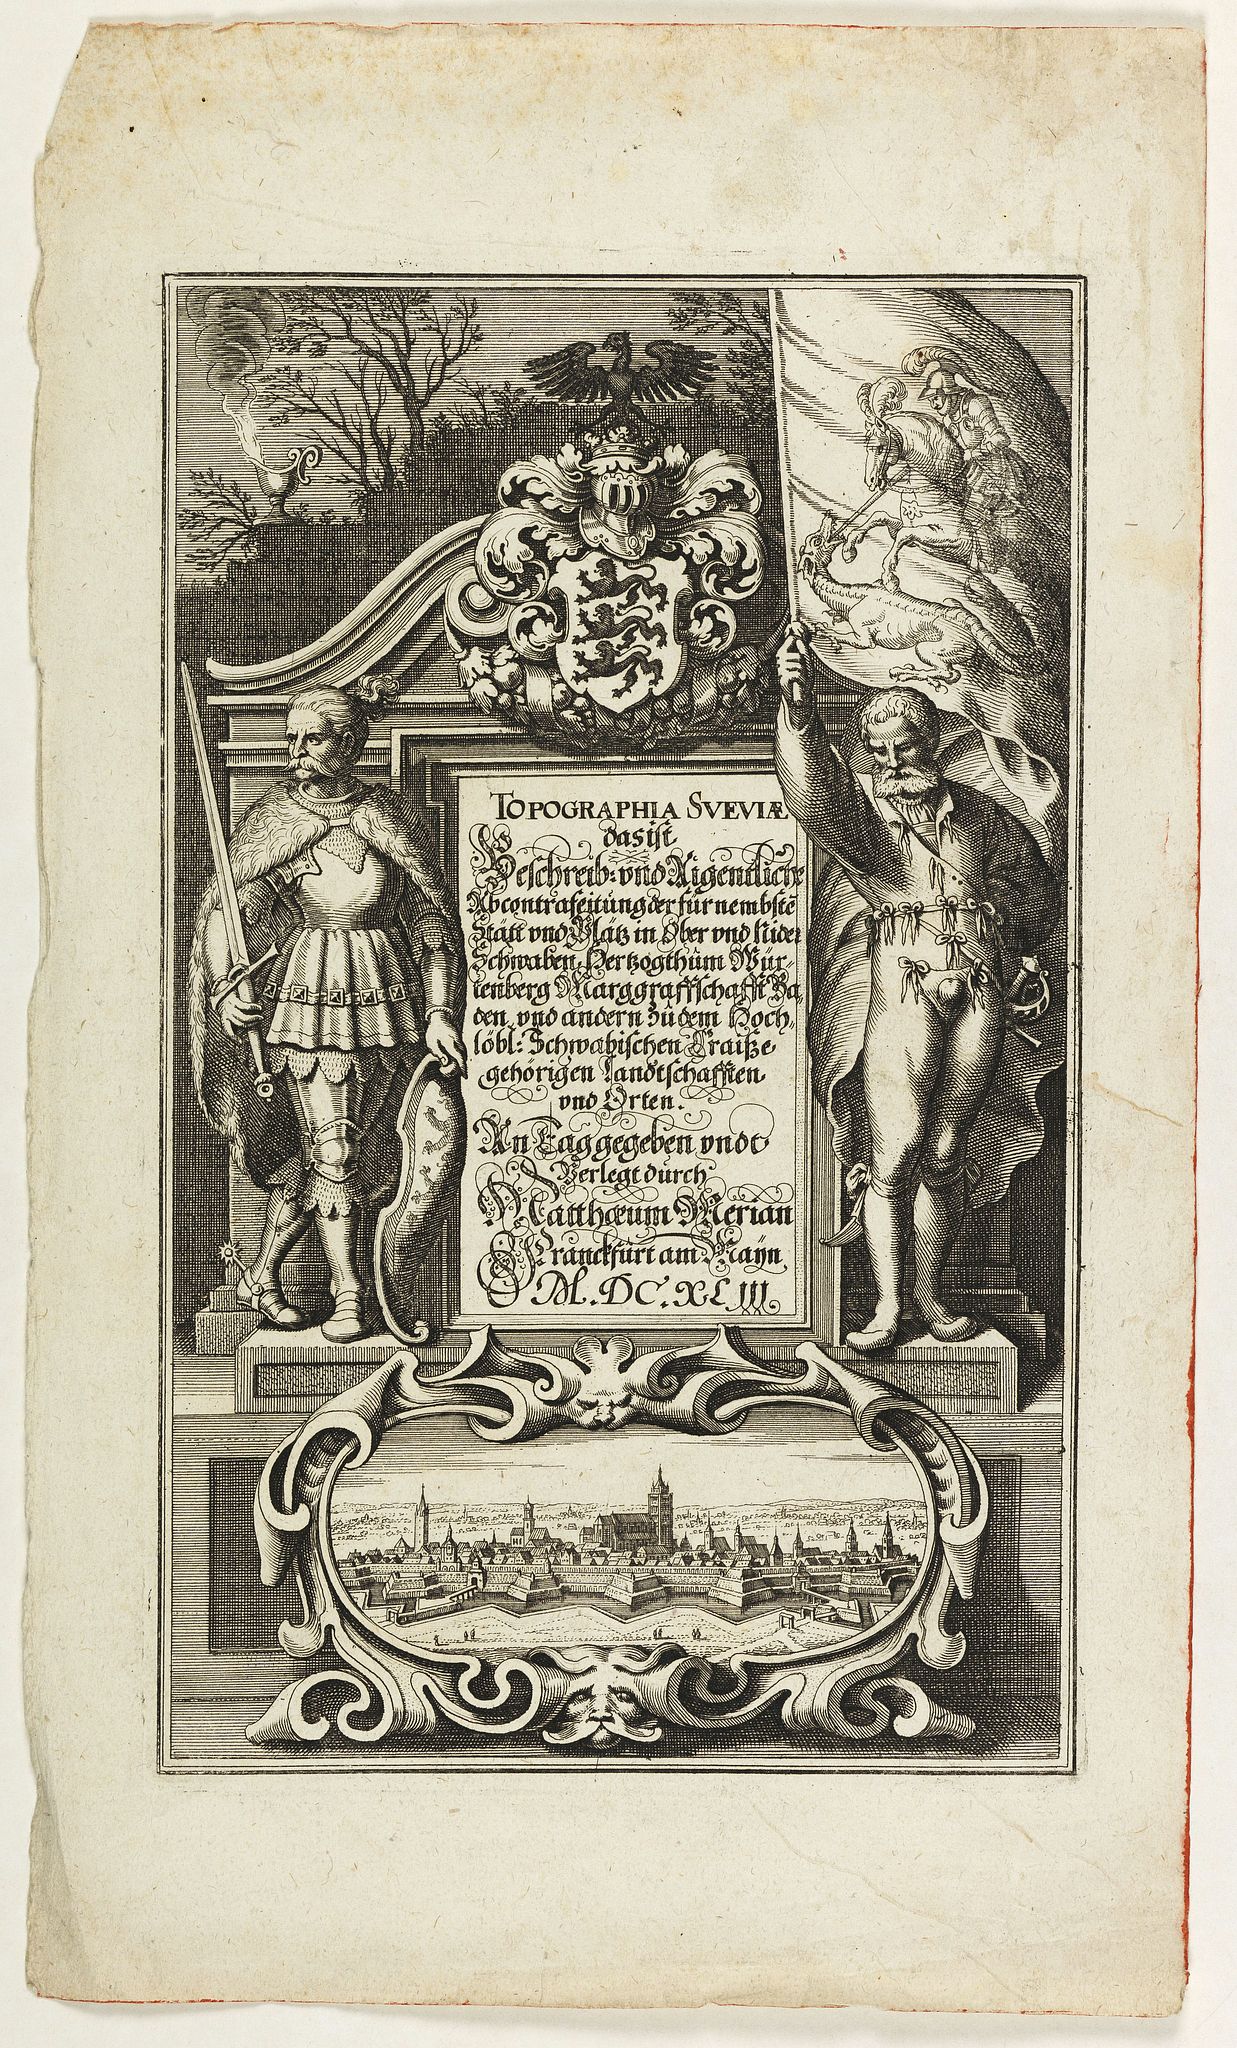 TOPOGRAPHIA SVEVIÆ
das ist
Beschreib: vnd Aigentliche
Abcontrafeitung der fürnembstē
Stätt vnd Plätz in Ober vnd Nider
Schwaben, Hertzogthum Wür-
tenberg Marggraffschafft Ba,
den, vnd andern zu dem Hoch,
löbl: Schwabischen Craiße
gehörigen Landtschafften
vnd Orten.
An Tag gegeben vndt
Verlegt durch
Matthæum Merian
Franckfurt am Mayn
M.DC.XLIII